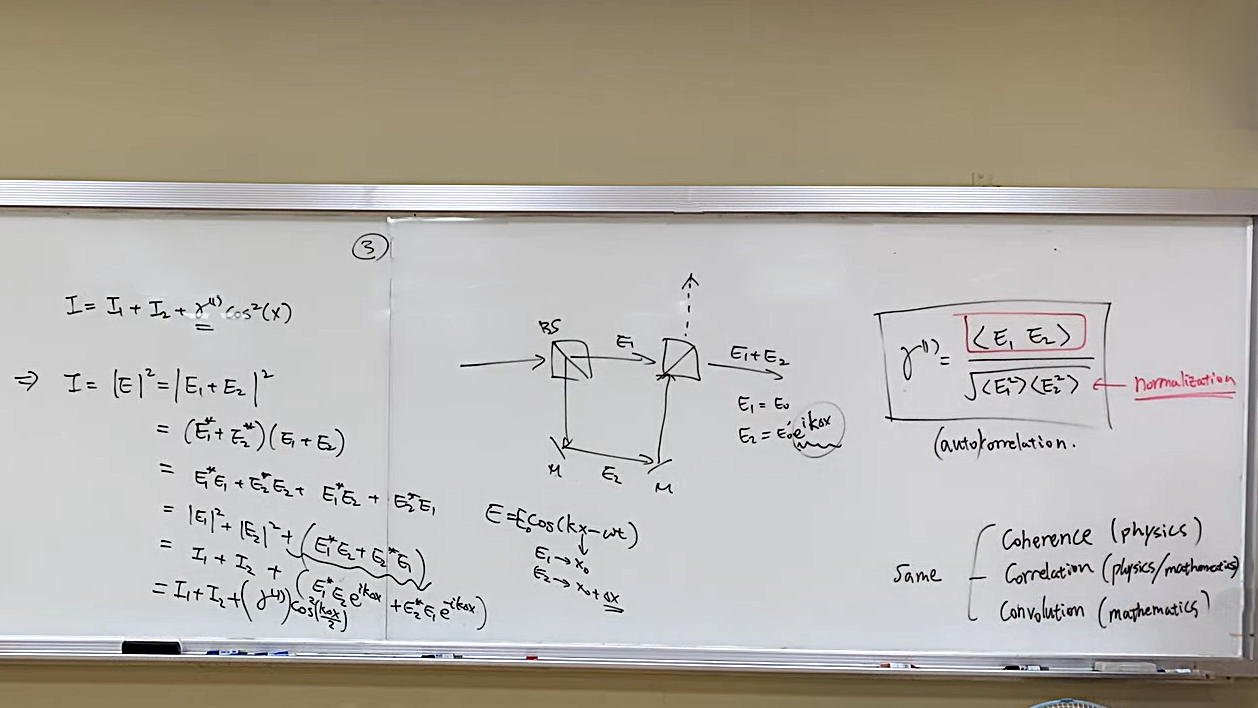 ③
I = I₁ + I₂ + γ⁽¹⁾ cos²(x)
⇒ I = |E|² = |E₁ + E₂|²
= (E₁* + E₂*)(E₁ + E₂)
= E₁*E₁ + E₂*E₂ + E₁*E₂ + E₂*E₁
= |E₁|² + |E₂|² + (E₁*E₂ + E₂*E₁)
= I₁ + I₂ + (E₁*E₂e^{ikΔx} + E₂*E₁e^{-ikΔx})
= I₁ + I₂ + (γ⁽¹⁾) cos²(kΔx/2)
BS
E₁
E₁ + E₂
M
E₂
M
E₁ = E₀
E₂ = E₀e^{ikΔx}
E = E₀cos(kx - ωt)
E₁ → x₀
E₂ → x₀ + Δx
γ⁽¹⁾ = <E₁ E₂> / √<E₁²><E₂²> ← normalization
(auto)correlation.
Same
Coherence (physics)
Correlation (physics/mathematics)
Convolution (mathematics)